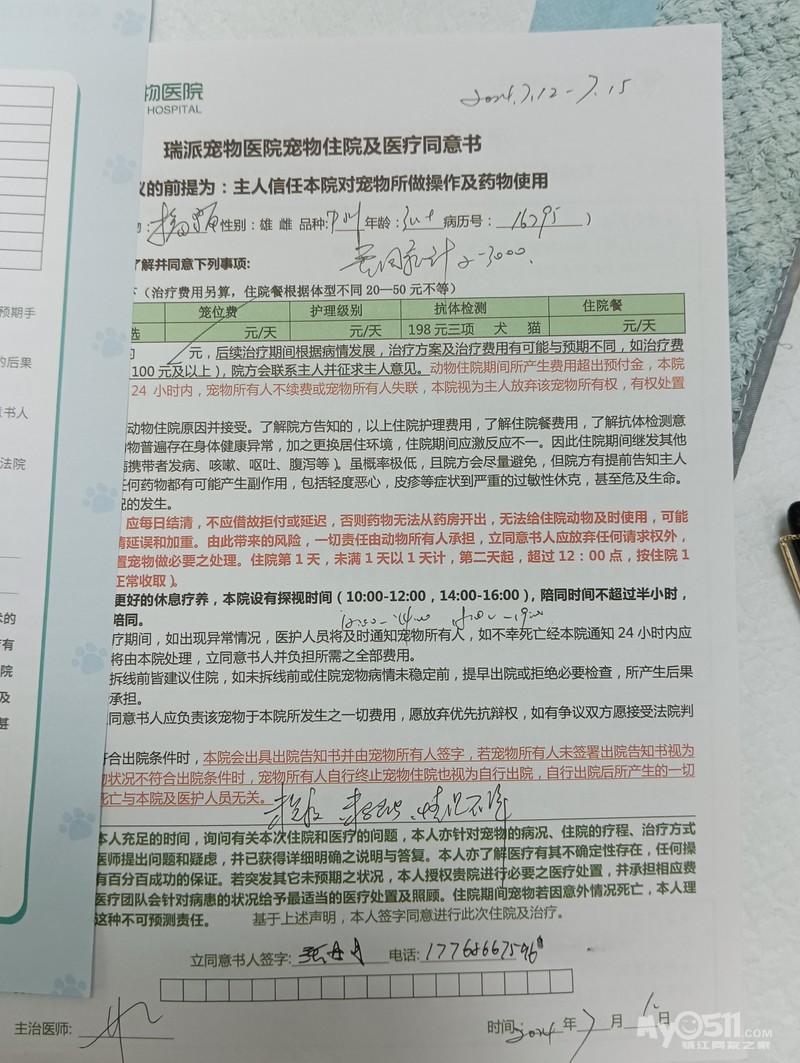 物医院
HOSPITAL
2024.7.12-7.15
瑞派宠物医院宠物住院及医疗同意书
议的前提为：主人信任本院对宠物所做操作及药物使用
性别：雄 雌 品种: 年龄： 病历号： 16295 )
了解并同意下列事项:
下（治疗费用另算，住院餐根据体型不同 20—50 元不等）
笼位费 护理级别 抗体检测 住院餐
选 元/天 元/天 198 元三项 犬 猫 元/天
元，后续治疗期间根据病情发展，治疗方案及治疗费用有可能与预期不同，如治疗费
100 元及以上），院方会联系主人并征求主人意见。动物住院期间所产生费用超出预付金，本院
24 小时内，宠物所有人不续费或宠物所有人失联，本院视为主人放弃该宠物所有权，有权处置
动物住院原因并接受。了解院方告知的，以上住院护理费用，了解住院餐费用，了解抗体检测意
物普遍存在身体健康异常，加之更换居住环境，住院期间应激反应不一。因此住院期间继发其他
携带者发病、咳嗽、呕吐、腹泻等）。虽概率极低，且院方会尽量避免，但院方有提前告知主人
任何药物都有可能产生副作用，包括轻度恶心，皮疹等症状到严重的过敏性休克，甚至危及生命。
况的发生。
应每日结清，不应借故拒付或延迟，否则药物无法从药房开出，无法给住院动物及时使用，可能
情延误和加重。由此带来的风险，一切责任由动物所有人承担，立同意书人应放弃任何请求权外，
置宠物做必要之处理。住院第 1 天，未满 1 天以 1 天计，第二天起，超过 12：00 点，按住院 1
正常收取）。
更好的休息疗养，本院设有探视时间（10:00-12:00，14:00-16:00），陪同时间不超过半小时，
陪同。
疗期间，如出现异常情况，医护人员将及时通知宠物所有人，如不幸死亡经本院通知 24 小时内应
将由本院处理，立同意书人并负担所需之全部费用。
拆线前皆建议住院，如未拆线前或住院宠物病情未稳定前，提早出院或拒绝必要检查，所产生后果
承担。
同意书人应负责该宠物于本院所发生之一切费用，愿放弃优先抗辩权，如有争议双方愿接受法院判
符合出院条件时，本院会出具出院告知书并由宠物所有人签字，若宠物所有人未签署出院告知书视为
物状况不符合出院条件时，宠物所有人自行终止宠物住院也视为自行出院，自行出院后所产生的一切
死亡与本院及医护人员无关。
本人充足的时间，询问有关本次住院和医疗的问题，本人亦针对宠物的病况、住院的疗程、治疗方式
医师提出问题和疑虑，并已获得详细明确之说明与答复。本人亦了解医疗有其不确定性存在，任何操
有百分百成功的保证。若突发其它未预期之状况，本人授权贵院进行必要之医疗处置，并承担相应费
医疗团队会针对病患的状况给予最适当的医疗处置及照顾。住院期间宠物若因意外情况死亡，本人理
这种不可预测责任。 基于上述声明，本人签字同意进行此次住院及治疗。
立同意书人签字: 电话: 17768667596
主治医师:
时间: 2024 年 7 月 日
预期手
的后果
书人
法院
术的
有
院
及
甚
My0511.COM
镇江网友之家